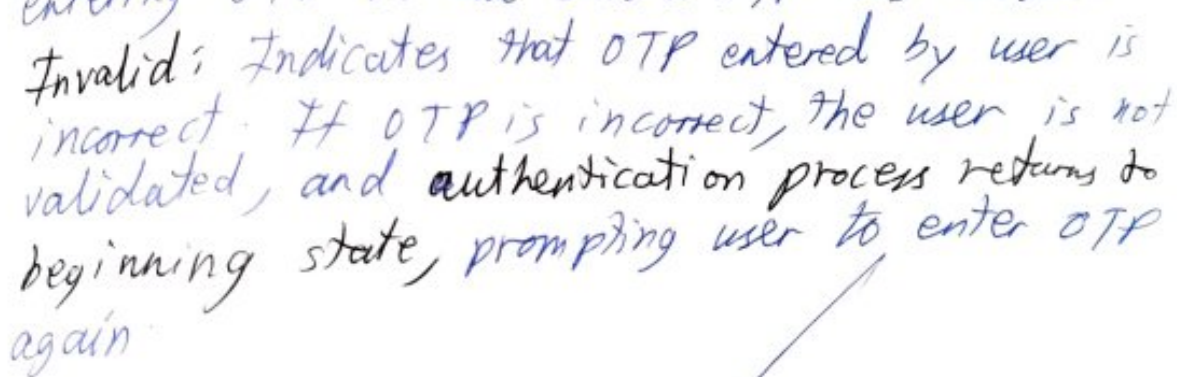 entering OTP
Invalid: Indicates that OTP entered by user is
incorrect. If OTP is incorrect, the user is not
validated, and authentication process returns to
beginning state, prompting user to enter OTP
again